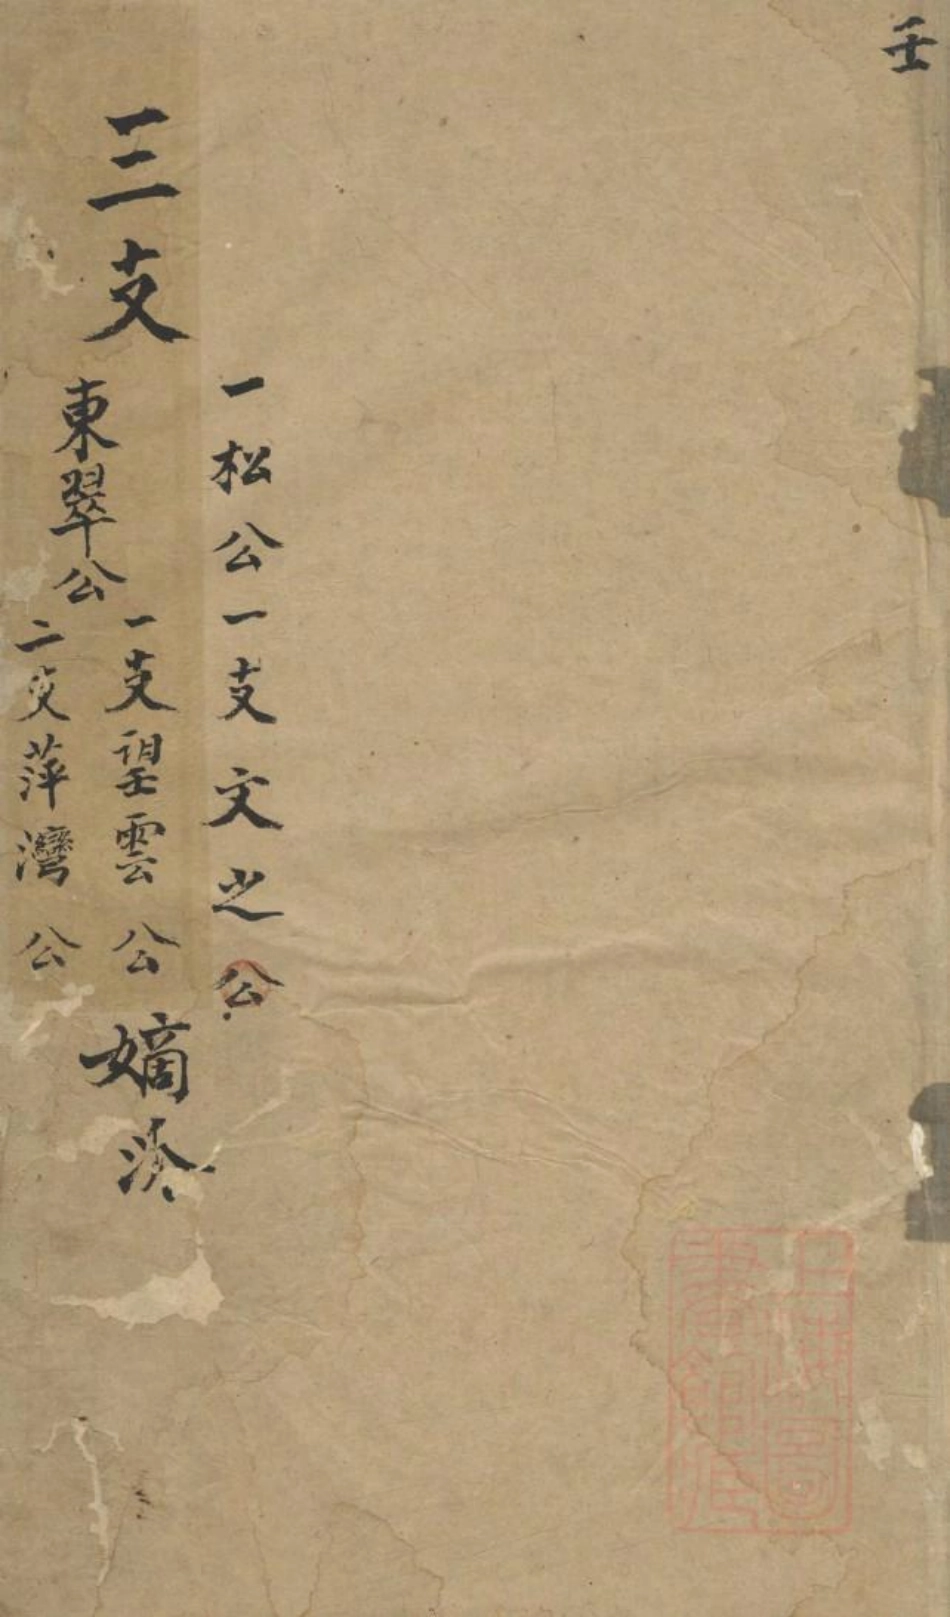 壬
一松公一支文之公
三支
東翠公
一支望雲公
二支萍灣公
嫡派
上海圖
書館藏